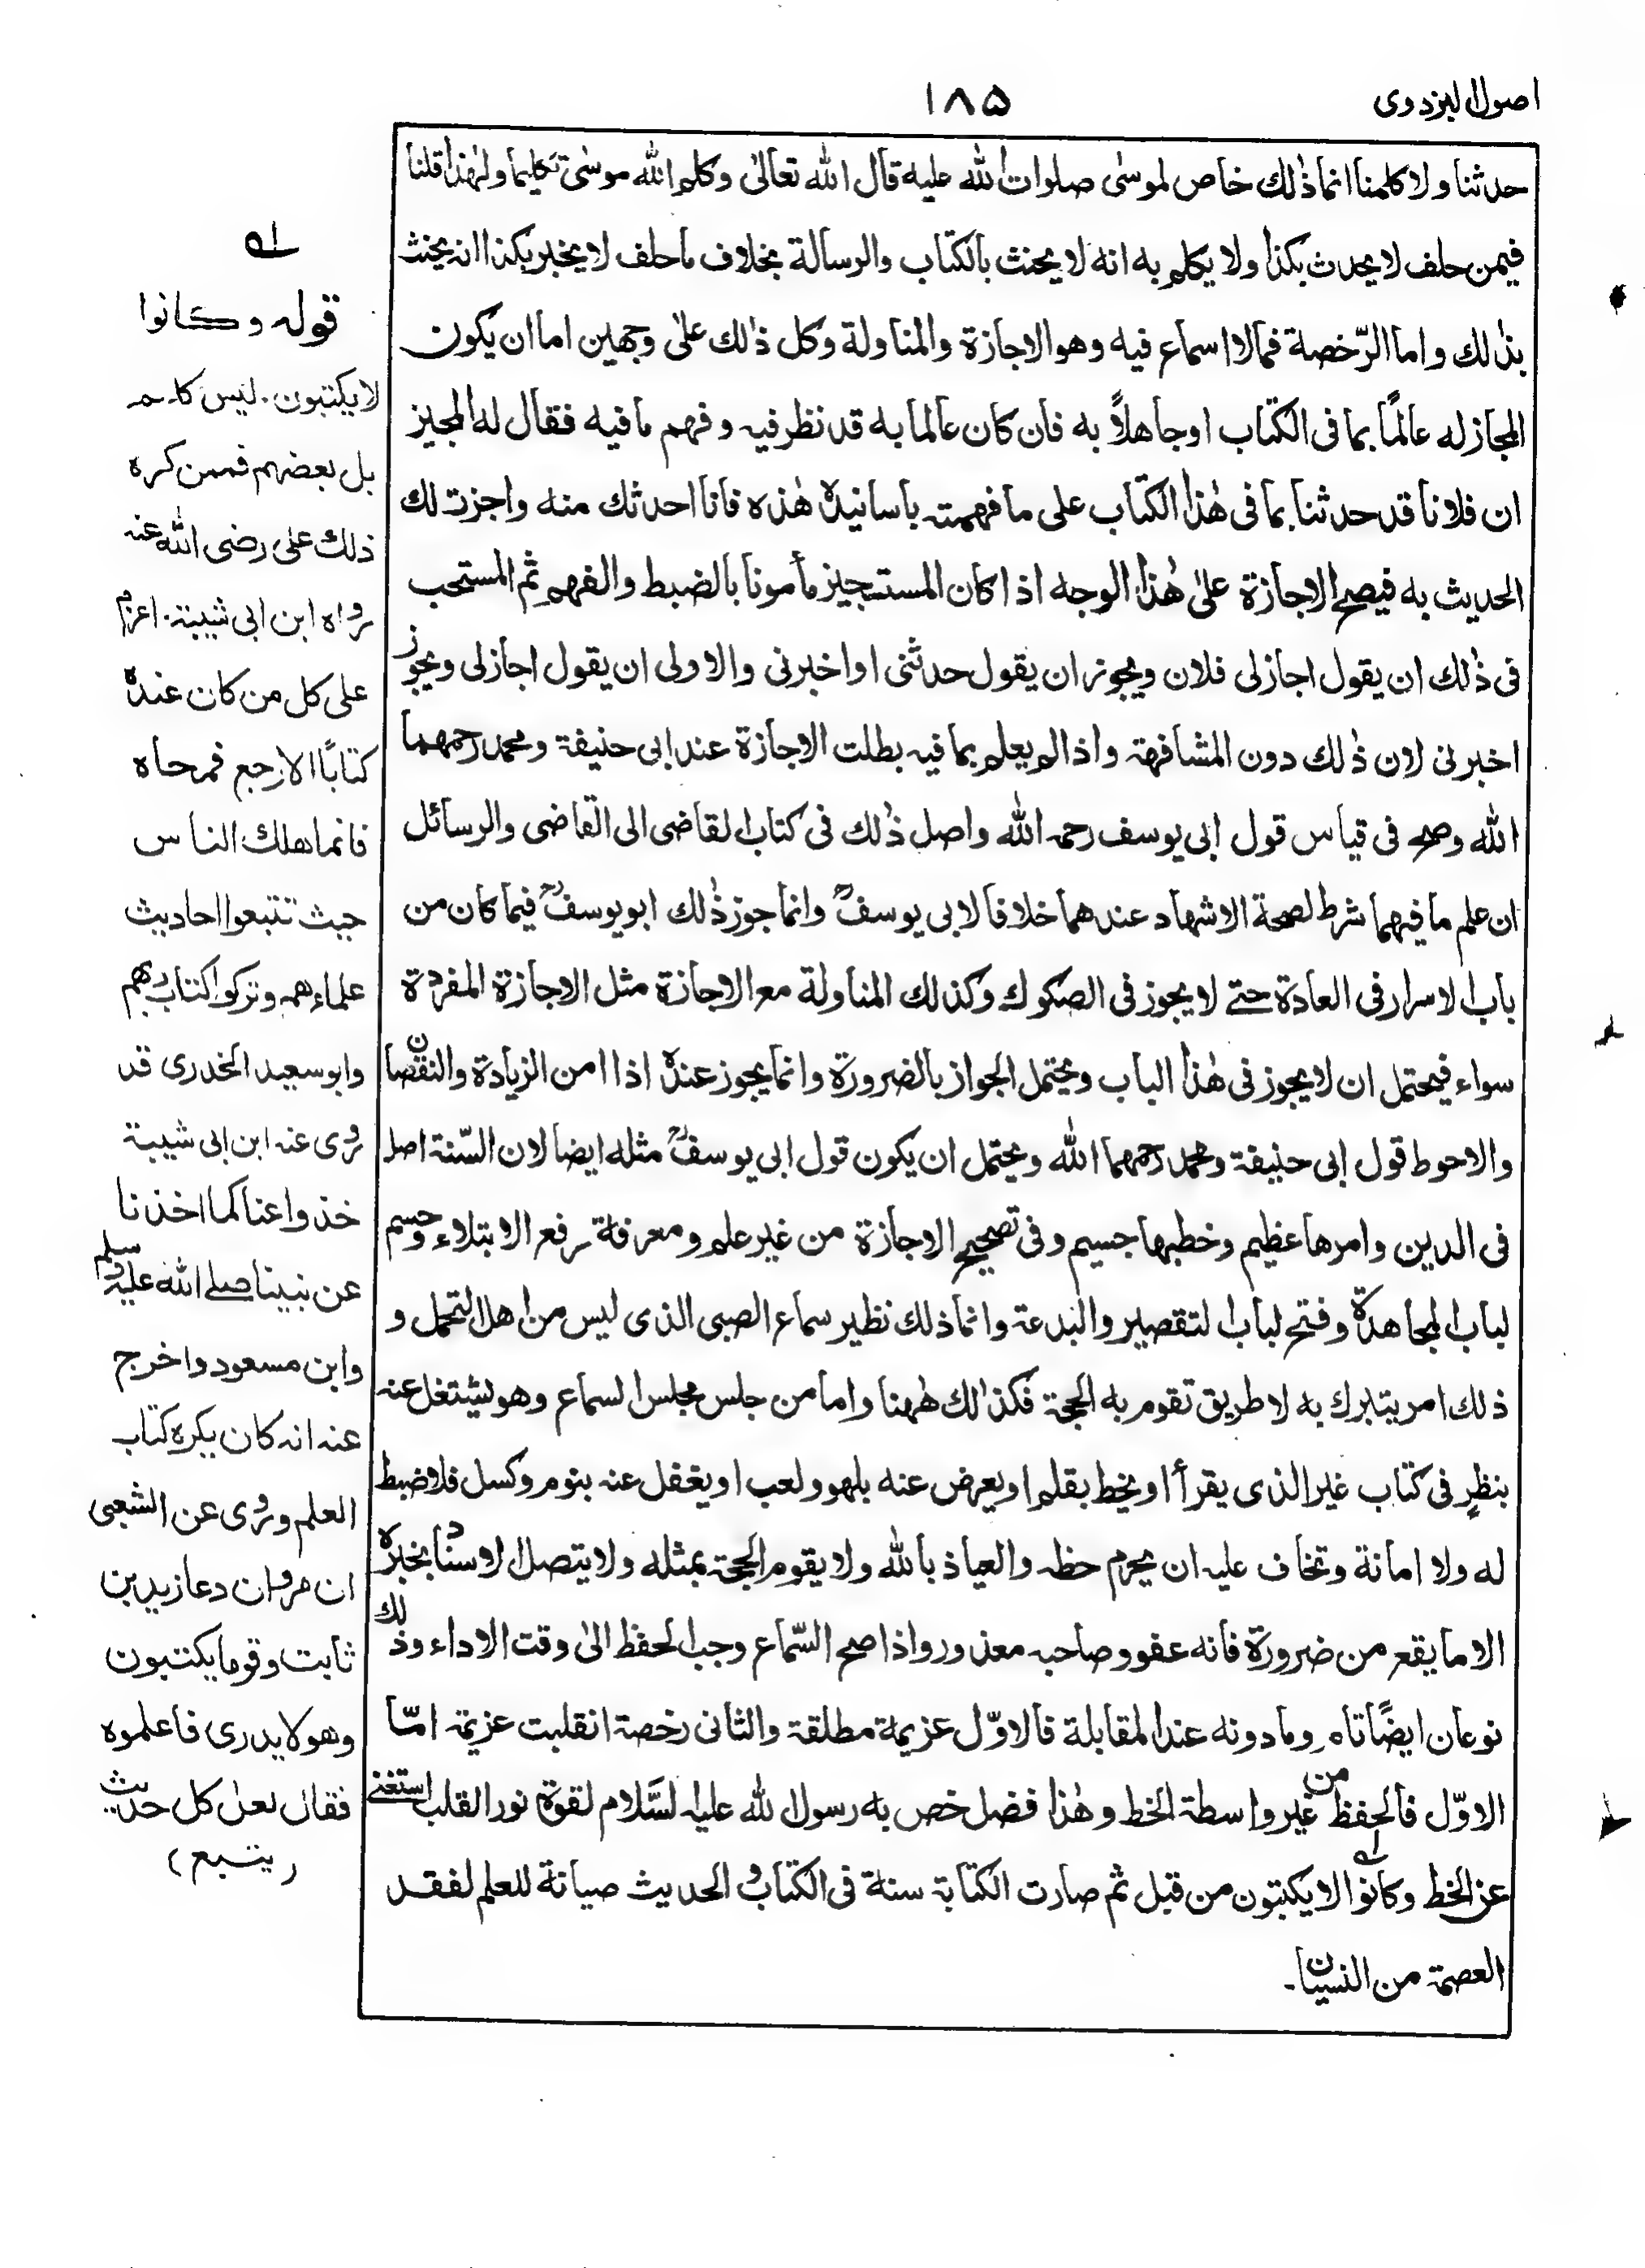 اصول البزدوى
١٨٥
حدثنا ولا كلمنا انما ذٰلك خاص لموسٰى صلوات الله عليه قال الله تعالىٰ وكلم الله موسٰى تكليما ولهٰذا قلنا
فيمن حلف لا يحدث بكذا ولا يكلم به انه لا يحنث بالكتاب والرسالة بخلاف ما حلف لا يخبر بكذا انه يحنث
بذٰلك واما الرّخصة فمالا اسماع فيه وهو الاجازة والمناولة وكل ذٰلك علٰى وجهين اما ان يكون
المجاز له عالمًا بما فى الكتاب او جاهلاً به فان كان عالما به قد نظر فيه وفهم ما فيه فقال له المجيز
ان فلانا قد حدثنا بما فى هٰذا الكتاب على ما فهمته باسانيده هٰذه فانا احدثك منه واجزت لك
الحديث به فيصح الاجازة علىٰ هٰذا الوجه اذا كان المستجيز مأمونا بالضبط والفهم ثم المستحب
فى ذٰلك ان يقول اجازلى فلان ويجوز ان يقول حدثنى او اخبرنى والاولى ان يقول اجازلى ويجوز
اخبرنى لان ذٰلك دون المشافهة واذا لم يعلم بما فيه بطلت الاجازة عند ابى حنيفة ومحمد رحمهما
الله وصح فى قياس قول ابى يوسف رحمه الله واصل ذٰلك فى كتاب القاضى الى القاضى والرسائل
ان علم ما فيهما شرط لصحة الاشهاد عندهما خلافا لابى يوسفؒ وانما جوز ذٰلك ابو يوسفؒ فيما كان من
باب الاسرار فى العادة حتے لا يجوز فى الصكوك وكذلك المناولة مع الاجازة مثل الاجازة المفردة
سواء فيحتمل ان لا يجوز فى هٰذا الباب ويحتمل الجواز بالضرورة وانما يجوز عنده اذا امن الزيادة والنقصان
والاحوط قول ابى حنيفة ومحمد رحمهما الله ويحتمل ان يكون قول ابى يوسفؒ مثله ايضا لان السّنة اصل
فى الدين وامرها عظيم وخطبها جسيم وفى تصحيح الاجازة من غير علم ومعرفة رفع الابتلاء وحسم
لباب المجاهدة وفتح لباب التقصير والبدعة وانما ذلك نظير سماع الصبى الذى ليس من اهل التحمل و
ذلك امر يتبرك به لا طريق تقوم به الحجة فكذٰلك هٰهنا واما من جلس مجلس السماع وهو يشتغل عنه
بنظرٍ فى كتاب غير الذى يقرأ او يخط بقلم او يعرض عنه بلهو ولعب او يغفل عنه بنوم وكسل فلا ضبط
له ولا امانة وتخاف عليه ان يحرم حظه والعياذ بالله ولا يقوم الحجة بمثله ولا يتصل الاسناد بخبره
الا ما يقع من ضرورة فانه عفو وصاحبه معذور واذا صح السّماع وجب الحفظ الىٰ وقت الاداء وذلك
نوعان ايضًا تام وما دونه عند المقابلة فالاوّل عزيمة مطلقة والثانى رخصة انقلبت عزيمة امّا
الاوّل فالحفظ من غير واسطة الخط وهٰذا فضل خص به رسول الله عليه السّلام لقوة نور القلب استغنے
عن الخط وكانوا لا يكتبون من قبل ثم صارت الكتابة سنة فى الكتاب والحديث صيانة للعلم لفقد
العصمة من النسيان۔
لے
قوله وكانوا
لا يكتبون. ليس كلهم
بل بعضهم فممن كره
ذلك على رضى الله عنه
رواه ابن ابى شيبة. اعزم
على كل من كان عنده
كتابًا الا رجع فمحاه
فانما هلك الناس
حيث تتبعوا احاديث
علماءهم وتركوا كتاب ربهم
وابو سعيد الخدرى قد
روى عنه ابن ابى شيبة
خذوا عنا كما اخذنا
عن نبينا صلے الله عليه وسلم
وابن مسعود واخرج
عنه انه كان يكره كتاب
العلم وروى عن الشعبى
ان مروان دعا زيد بن
ثابت وقوما يكتبون
وهو لا يدرى فاعلموه
فقال لعل كل حديث
(يتبع)